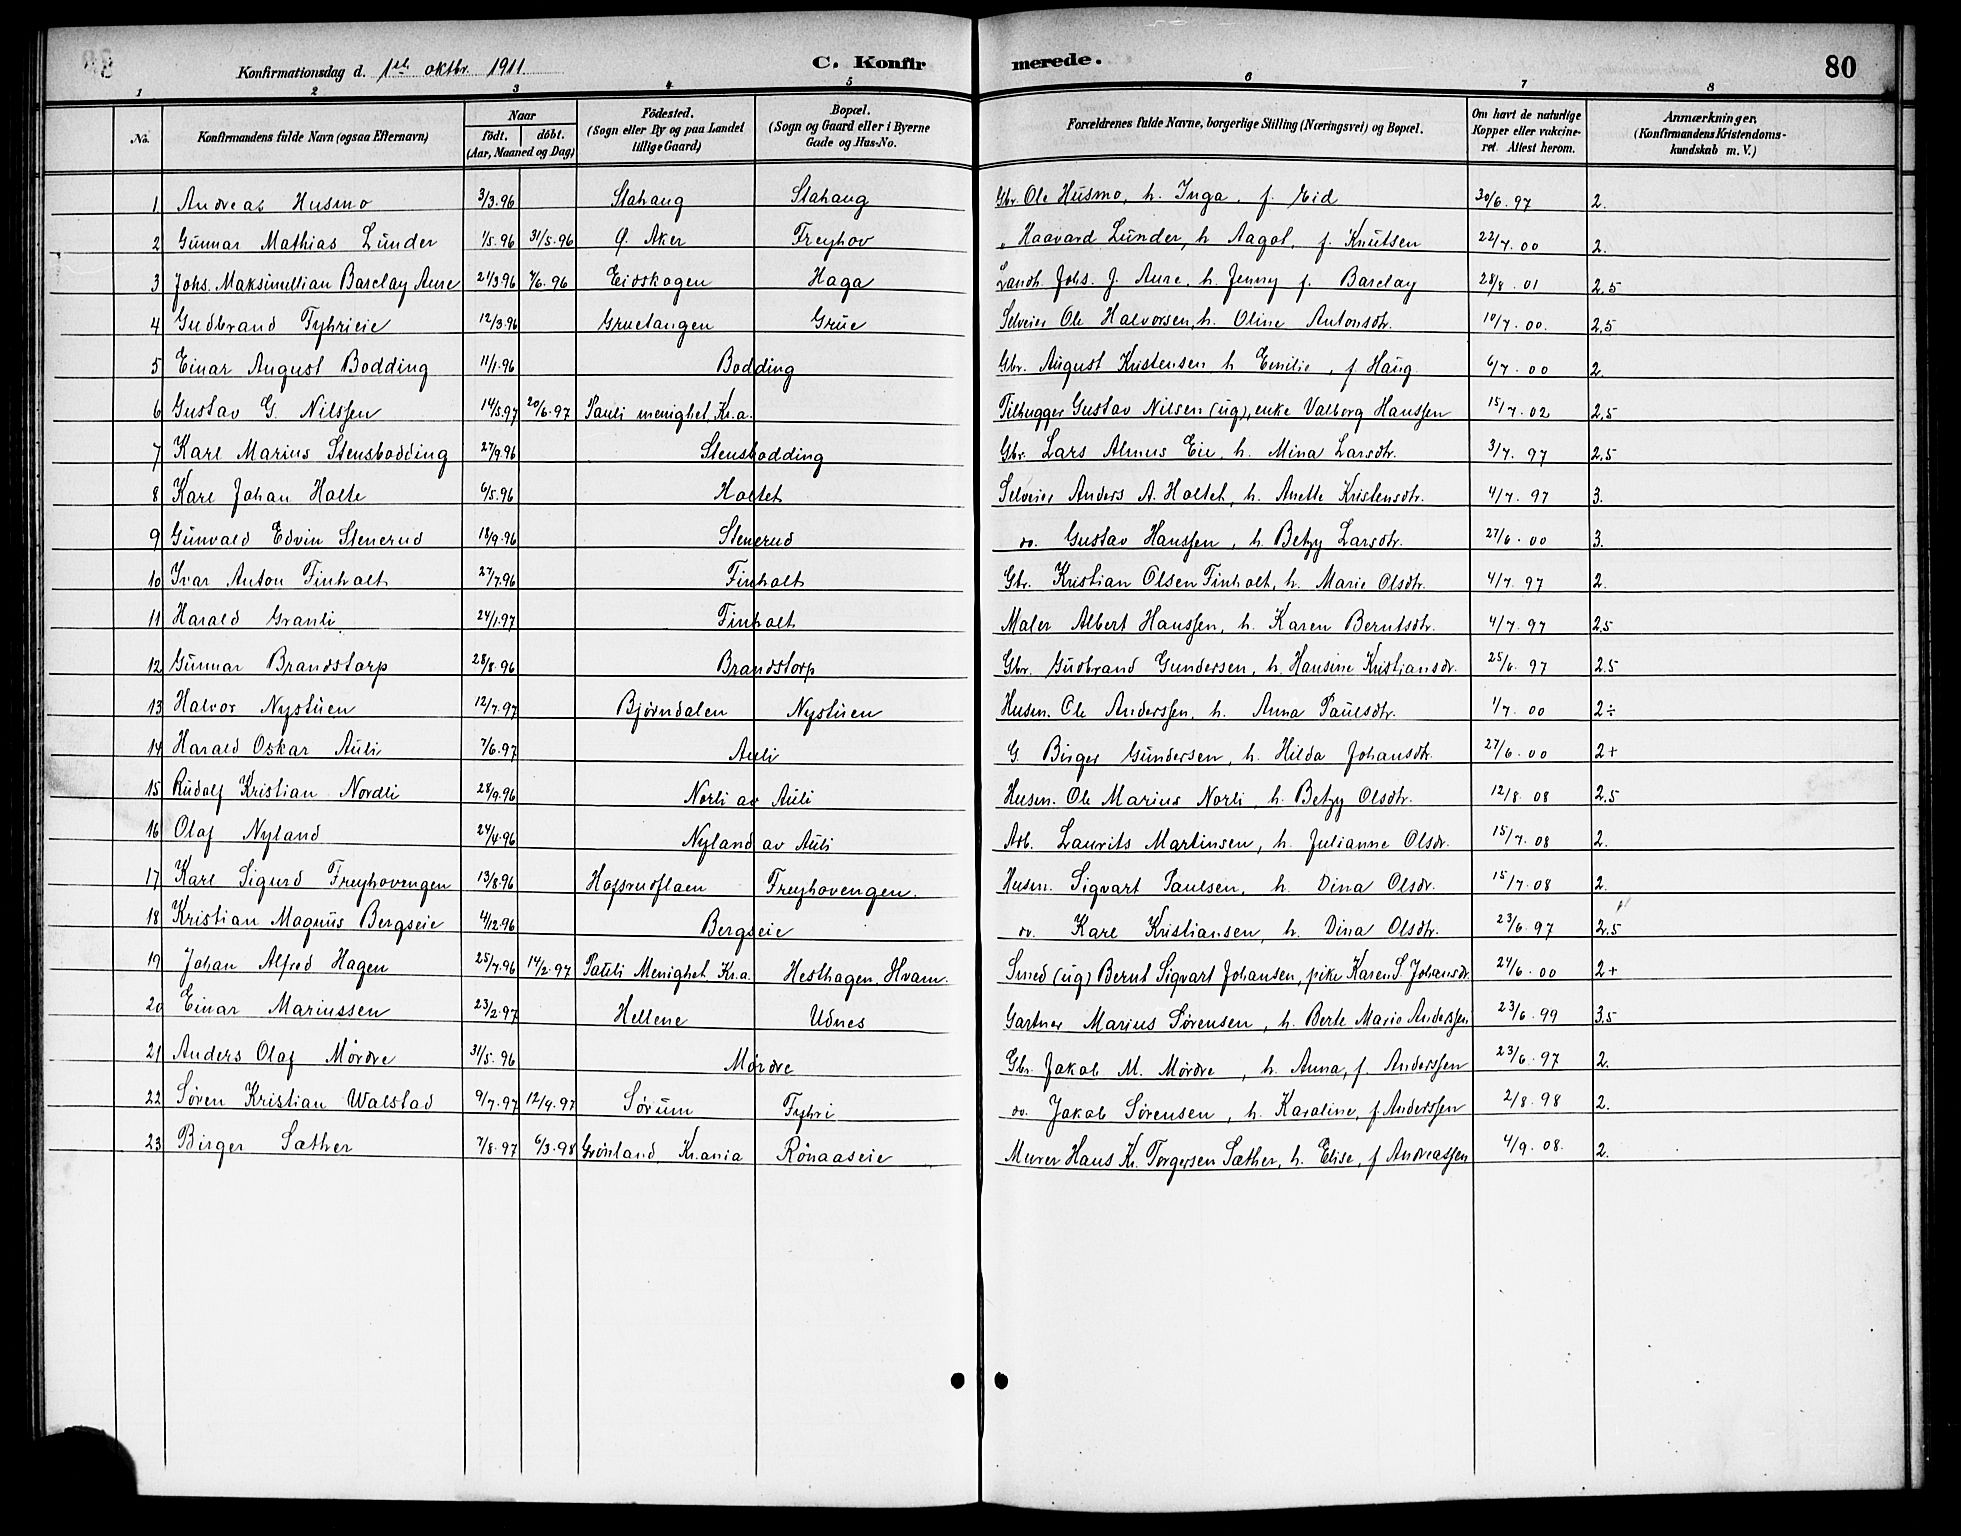 Konfirmationsdag d. 1ste oktbr. 1911.
C. Konfirmerede.
80
1 2 3 4 5 6 7 8
No. Konfirmandens fulde Navn (ogsaa Efternavn) Naar födt. döbt. (Aar, Maaned og Dag) Födested. (Sogn eller By og paa Landet tillige Gaard) Bopæl. (Sogn og Gaard eller i Byerne Gade og Hus-No. Forældrenes fulde Navne, borgerlige Stilling (Næringsvei) og Bopæl. Om havt de naturlige Kopper eller vakcineret. Attest herom. Anmærkninger. (Konfirmandens Kristendomskundskab m. V.)
1 Andreas Husmo 3/3.96 Slahaug Slahaug Gbr. Ole Husmo, h. Inga, f. Eid 30/6.97 2.
2 Gunnar Mathias Lunder 1/5.96 31/5.96 Ø. Aker Freyhov " Haavard Lunder, h. Aagot, f. Knutsen 22/7.00 2.
3 Johs. Maksimillian Barclay Aure 21/3.96 7/6.96 Eidskogen Haga Landh. Johs. J. Aure, h. Jenny f. Barclay 28/8.01 2,5
4 Gudbrand Tyhrieie 12/3.96 Gruetangen Grue Selveier Ole Halvorsen, h. Oline Antonsdtr. 10/7.00. 2,5
5 Einar August Bodding 11/1.96 Bodding Gbr. August Kristensen h Emilie, f Haug 6/7.00 2.
6 Gustav G. Nilssen 14/5.97 20/6.97 Pauli menighet, Kr.a. Tilhugger Gustav Nilsen (ug), enke Valborg Hanssen 15/7.02 2,5
7 Karl Marius Stensbodding 27/9.96 Stensbodding Gbr. Lars Almus Eie, h. Mina Larsdtr. 3/7.97 2,5
8 Karl Johan Holte 6/5.96 Holtet Selveier Anders A. Holtet, h. Anette Kristensdtr. 4/7.97 3.
9 Gunvald Edvin Stenerud 18/9.96 Stenerud do. Gustav Hanssen, h. Betzy Larsdtr. 27/6.00 3.
10 Ivar Anton Finholt 27/7.96 Finholt Gbr. Kristian Olsen Finholt, h. Marie Olsdtr. 4/7.97 2.
11 Harald Granli 24/1.97 Finholt Maler Albert Hanssen, h. Karen Berntsdtr. 4/7.97 2,5
12 Gunnar Brandstorp 28/8.96 Brandstorp Gbr. Gudbrand Gundersen, h. Hansine Kristiansdr. 25/6.97 2,5
13 Halvor Nystuen 12/7.97 Bjørndalen Nystuen Husm. Ole Anderssen, h. Anna Paulsdtr. 1/7.00 2÷
14 Harald Oskar Auli 7/6.97 Auli G. Birger Gundersen, h. Hilda Johansdtr. 27/6.00 2+
15 Rudolf Kristian Nordli 28/9.96 Norli av Auli Husm. Ole Marius Norli, h. Betzy Olsdtr. 12/8.08 2,5
16 Olaf Nyland 24/4.96 Nyland av Auli Arb. Laurits Martinsen, h. Julianne Olsdr. 15/7.08 2.
17 Karl Sigurd Freyhovengen 13/8.96 Hofsrudflaen Freyhovengen. Husm. Sigvart Paulsen, h. Dina Olsdr. 15/7.08 2.
18 Kristian Magnus Bergseie 4/12.96 Bergseie do. Karl Kristiansen, h. Dina Olsdtr. 23/6.97 2,5
19 Johan Alfred Hagen 25/7.96 14/2.97 Pauli Menighet, Kr.a. Hesthagen, Hvam. Smed (ug) Bernt Sigvart Johansen, pike Karen S. Johansdr. 24/6.00 2+
20 Einar Mariussen 23/2.97 Hellene Udnes Gartner Marius Sørensen, h. Berte Marie Anderssen 23/6.99 3,5
21 Anders Olaf Mördre 31/5.96 Mördre Gbr. Jakob M. Mördre, h. Anna, f. Anderssen 23/6.97 2.
22 Søren Kristian Walstad 9/7.97 12/9.97 Sørum Tyhri do. Jakob Sørensen, h. Karoline, f. Anderssen 2/8.98 2.
23 Birger Sæther 7/8.97 6/3.98 Grönland, Kr.ania Rönaaseie Murer Hans Kr. Torgersen Sæther, h. Elise, f Andreassen 4/9.08. 2.